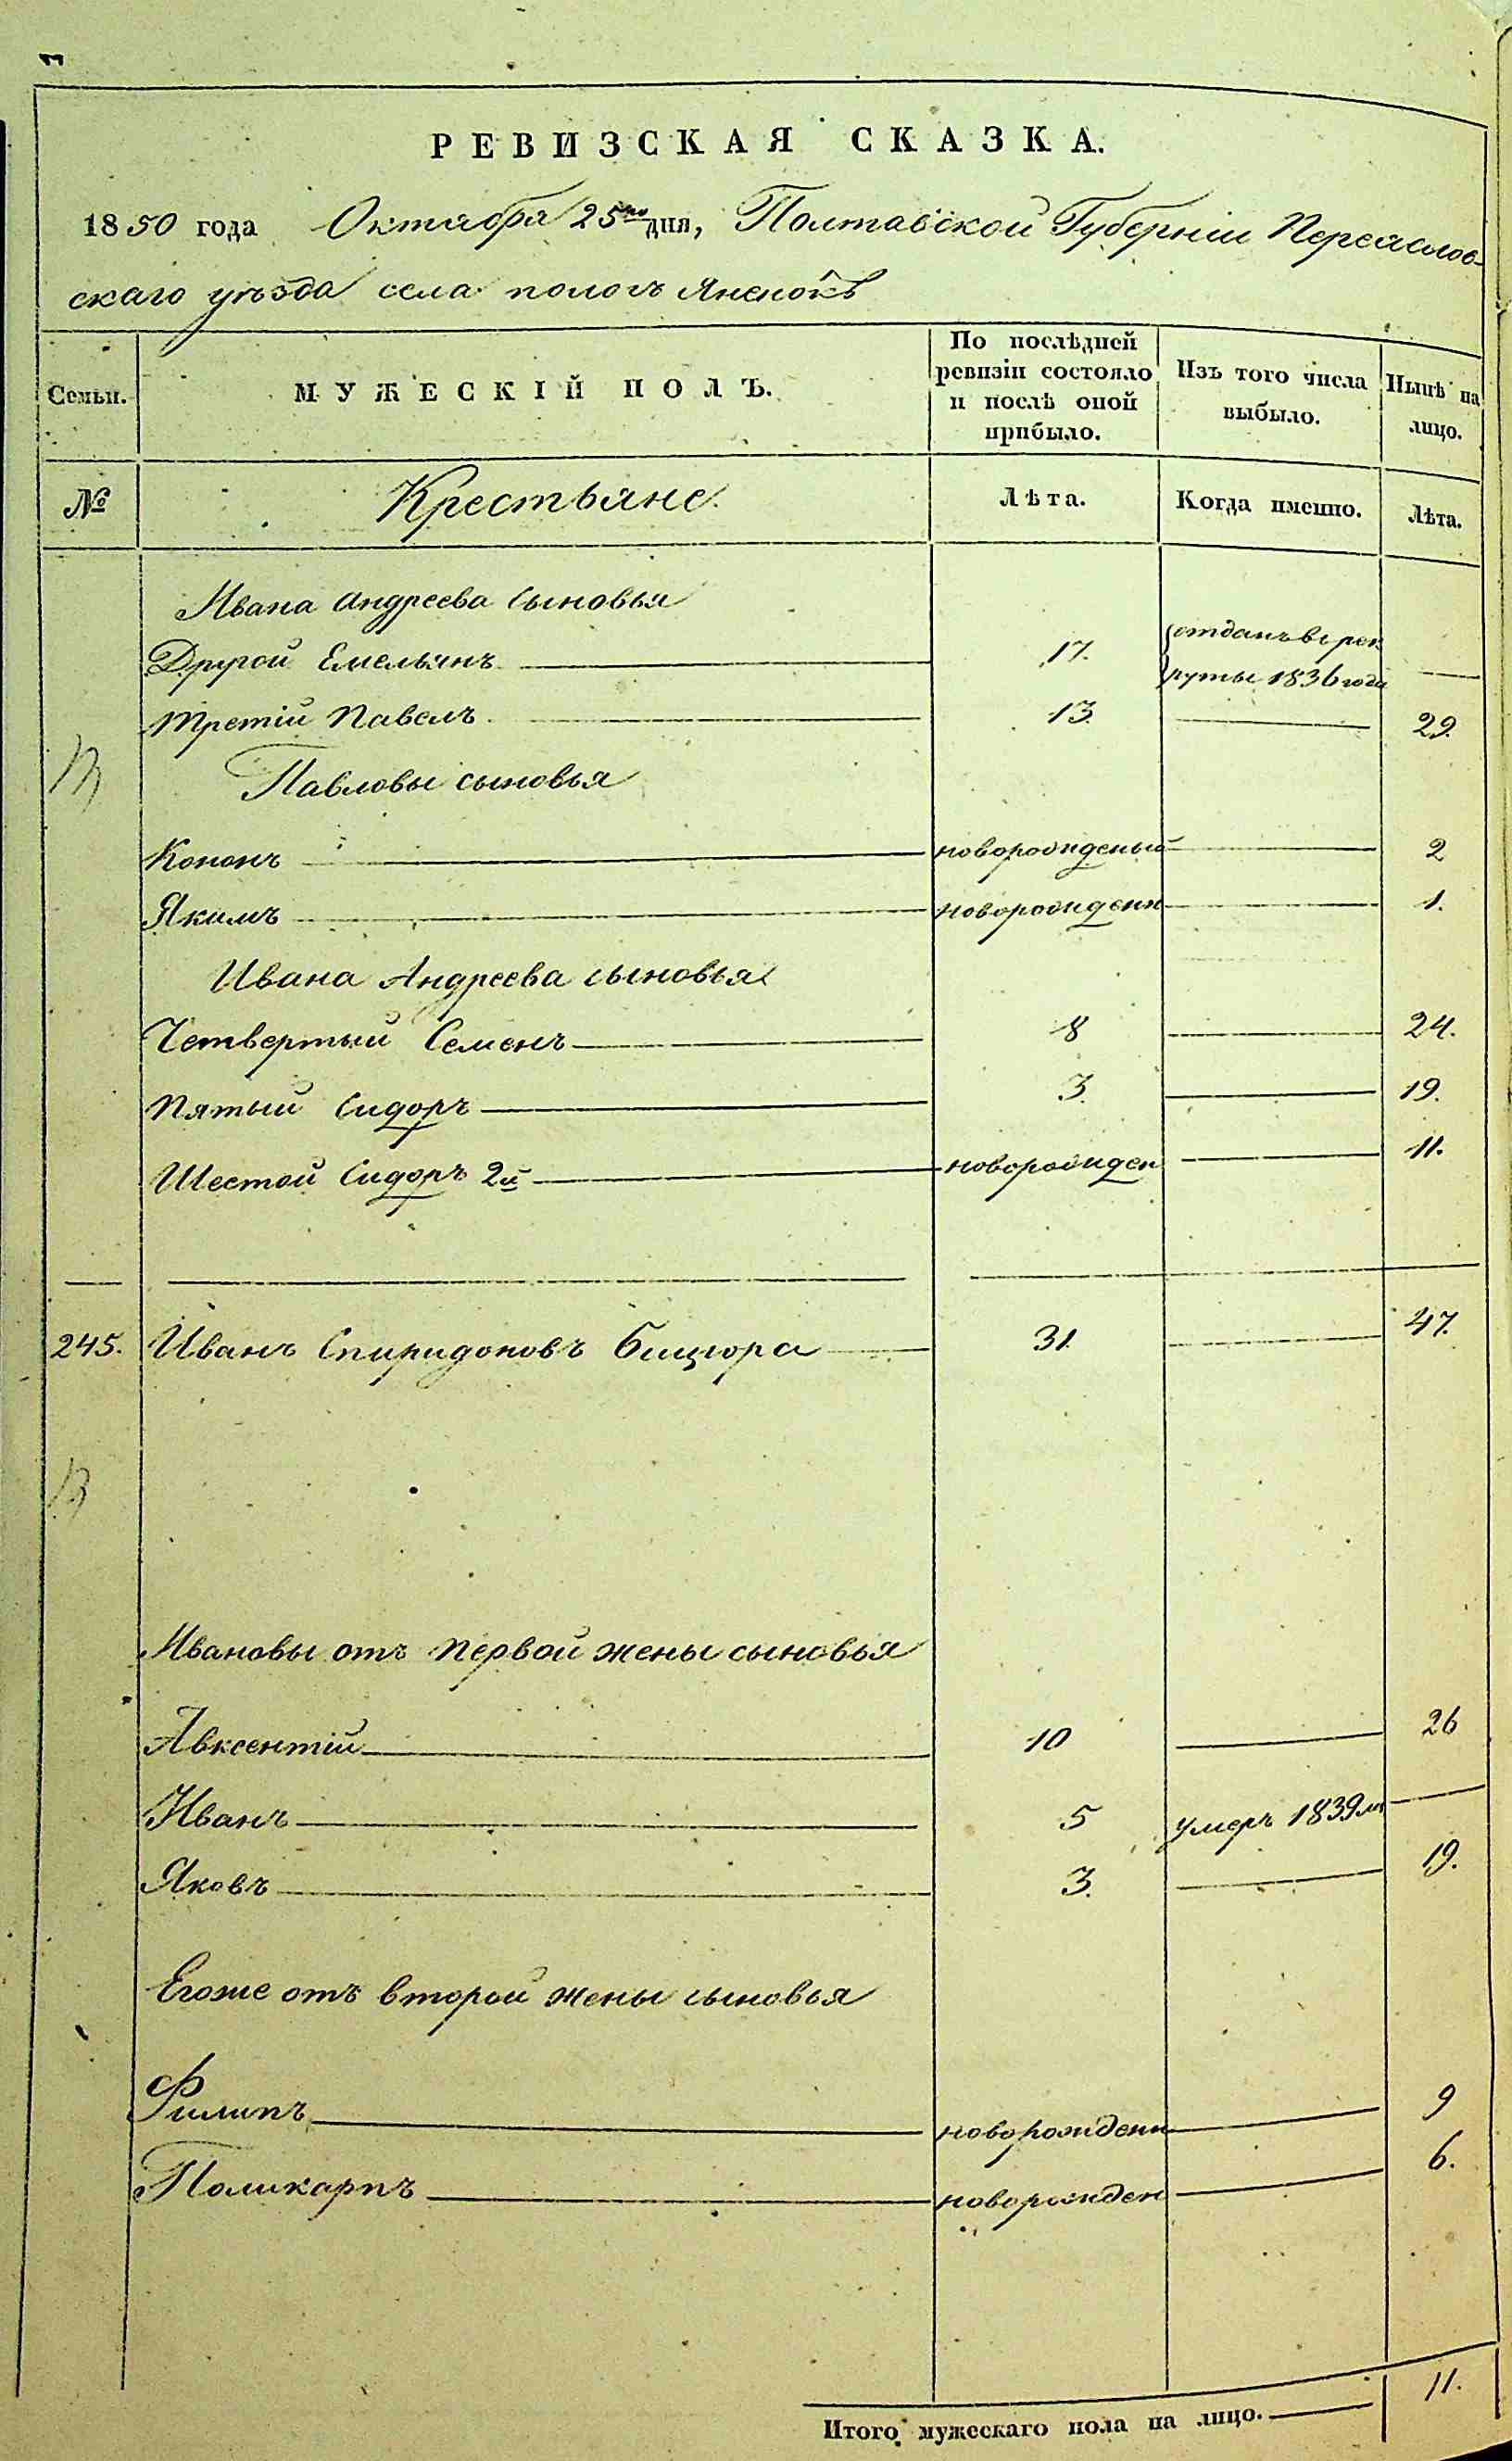 РЕВИЗСКАЯ СКАЗКА.
1850 года Октября 25го дня, Полтавской Губерніи Переяслов-
скаго уѣзда села пологъ Яненокъ
Семьи. МУЖЕСКІЙ ПОЛЪ. По послѣдней ревизіи состояло и послѣ оной прибыло. Изъ того числа выбыло. Нынѣ на лицо.
№ Крестьяне. Лѣта. Когда именно. Лѣта.
Ивана Андреева сыновья
Другой Емельянъ 17. отданъ въ рек
руты 1836 года
Третій Павелъ 13. 29.
Павловы сыновья
Кононъ новорожденый 2
Якимъ новорожденн 1.
Ивана Андреева сыновья
Четвертый Семенъ 8 24.
Пятый Сидоръ 3. 19.
Шестой Сидоръ 2й новорожден 11.
245. Иванъ Спиридоновъ Бицюра 31. 47.
Ивановы отъ первой жены сыновья
Авксентій 10 26
Иванъ 5 умеръ 1839
Яковъ 3. 19.
Егоже отъ второй жены сыновья
Филипъ новорожденн 9
Поликарпъ новорожден 6.
Итого мужескаго пола на лицо. 11.